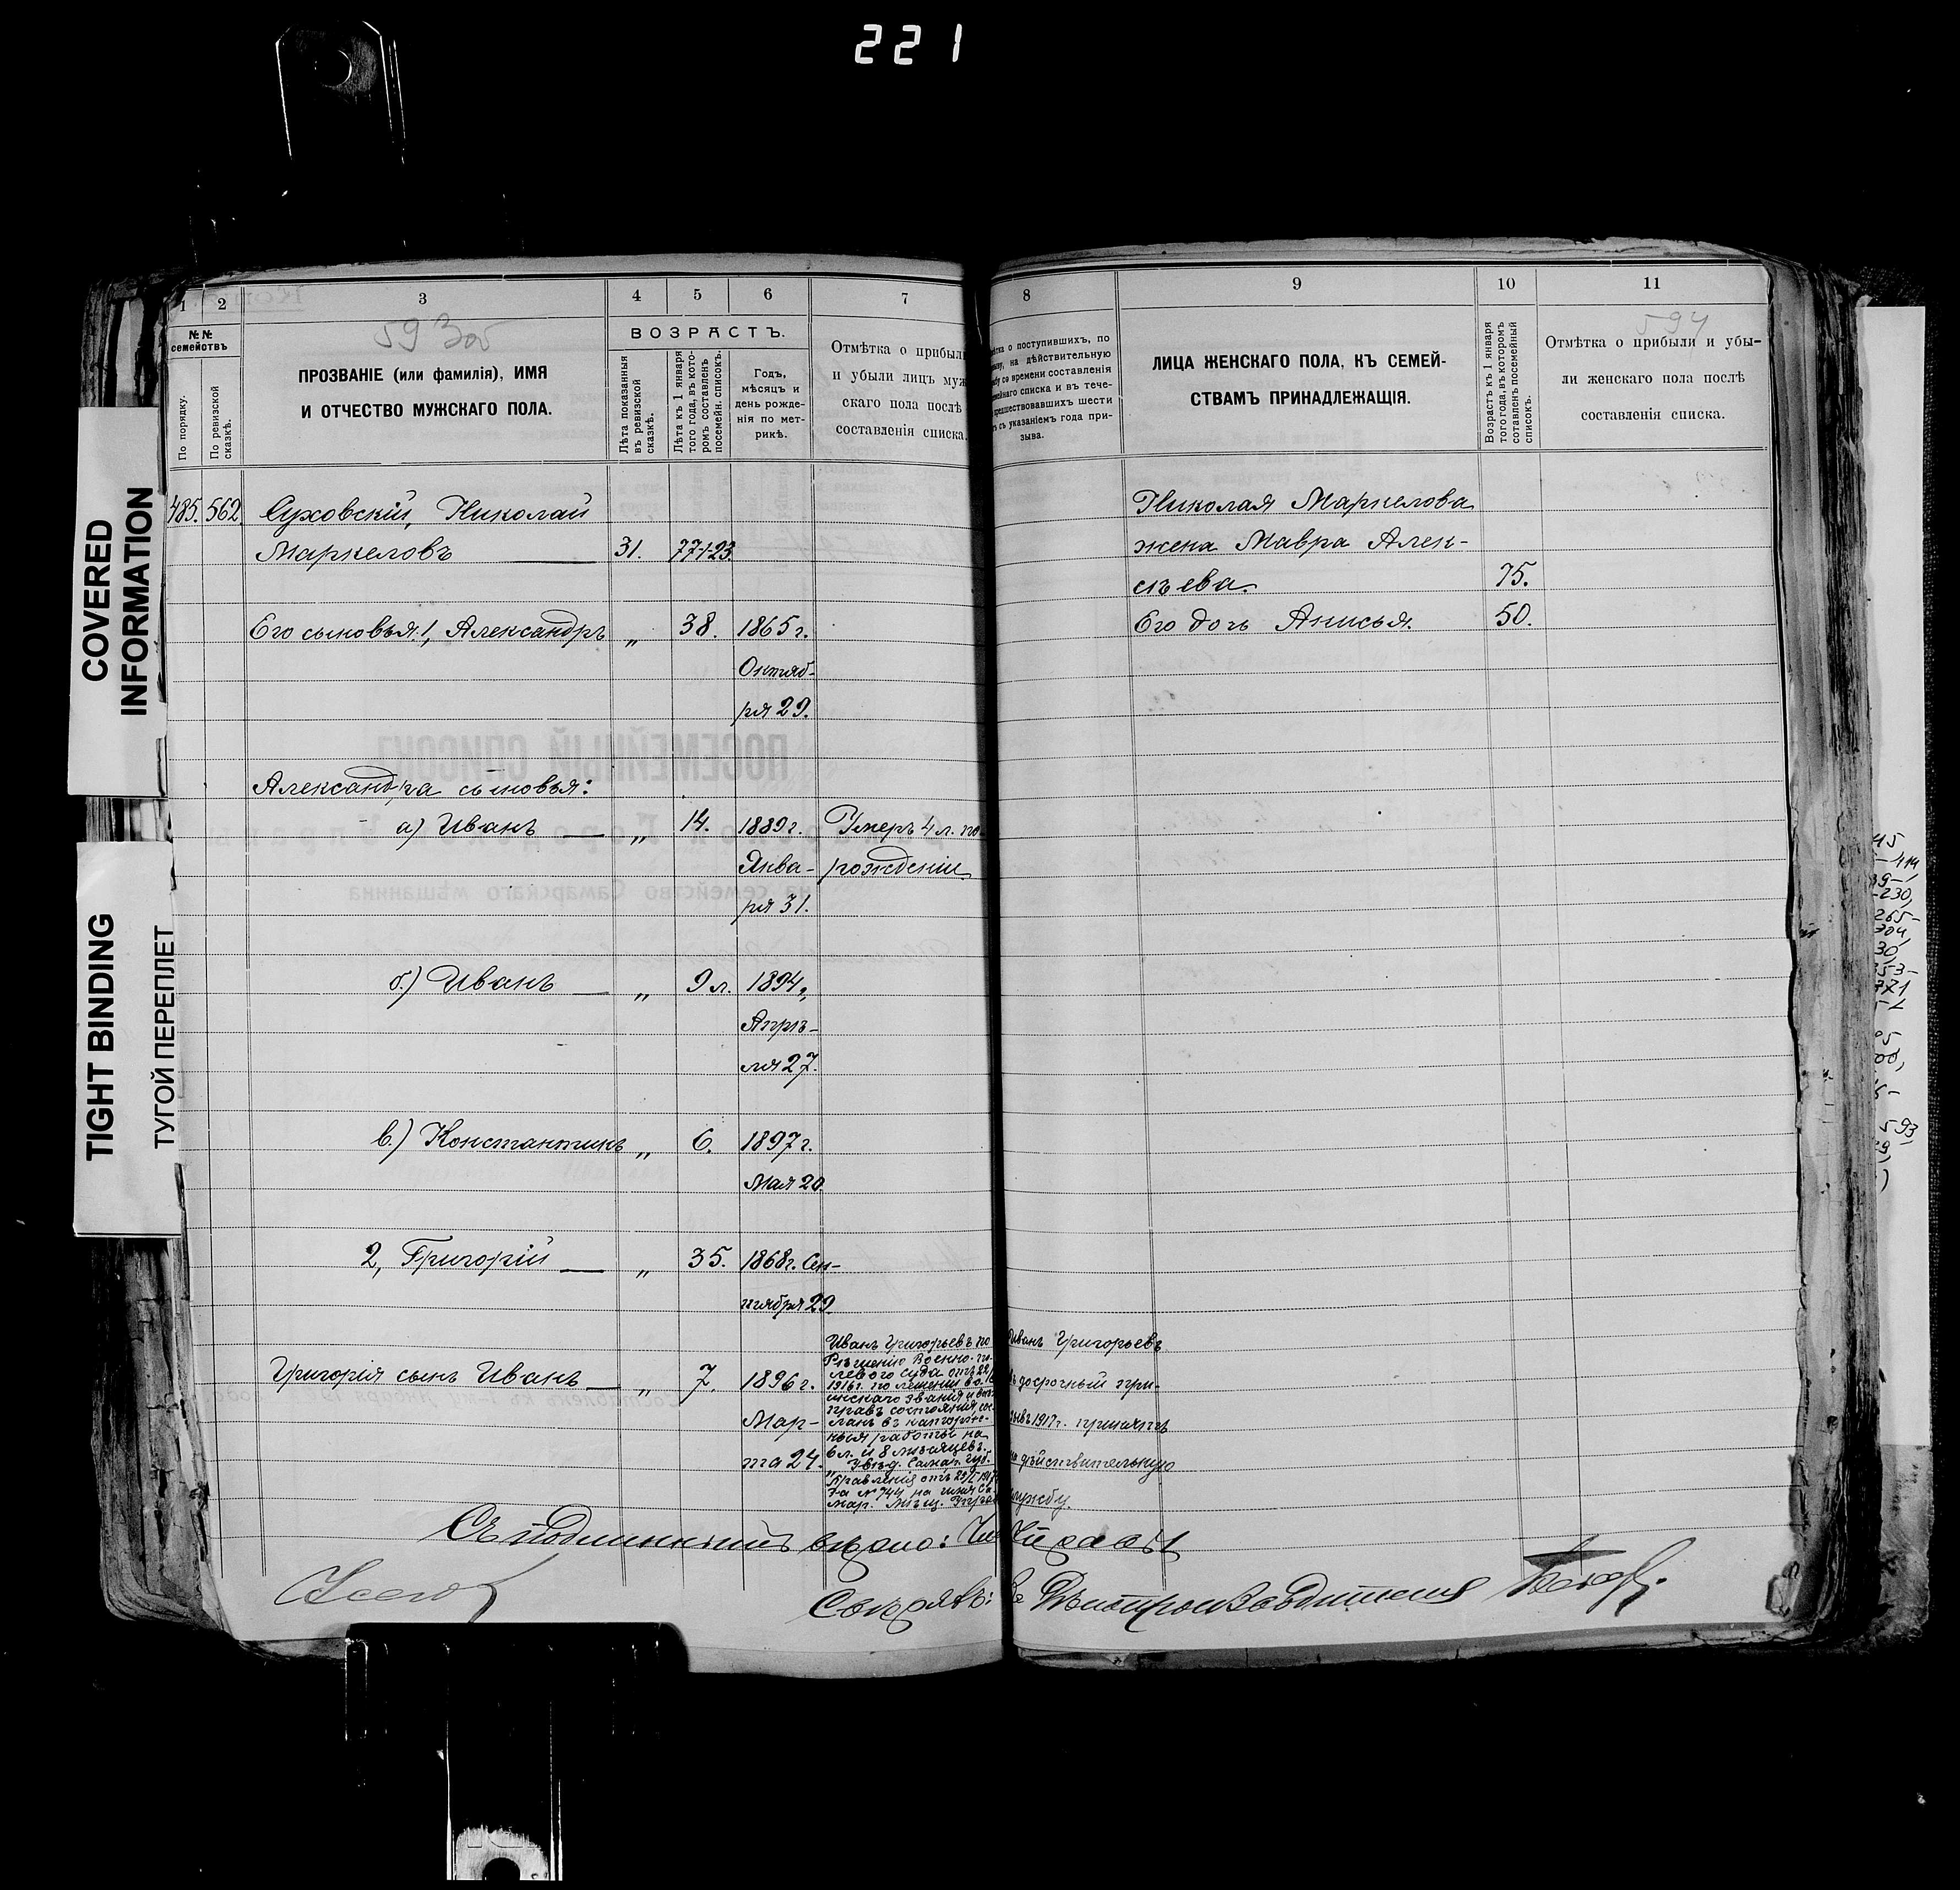 221
COVERED
INFORMATION
TIGHT BINDING
ТУГОЙ ПЕРЕПЛЕТ
1 2 3 4 5 6 7
№№
семействъ
По порядку.
По ревизской
сказкѣ.
593об
ПРОЗВАНІЕ (или фамилія), ИМЯ
И ОТЧЕСТВО МУЖСКАГО ПОЛА.
ВОЗРАСТЪ.
Лѣта показанныя
въ ревизской
сказкѣ.
Лѣта къ 1 января
того года, въ кото-
ромъ составленъ
посемейн. списокъ.
Годъ,
мѣсяцъ и
день рожде-
нія по мет-
рикѣ.
Отмѣтка о прибыли
и убыли лицъ муж
скаго пола послѣ
составленія списка.
485. 562. Суховскій, Николай
Маркеловъ 31. 77-1-23.
Его сыновья: 1, Александръ „ 38. 1865 г.
Октяб-
ря 29.
Александра сыновья:
а) Иванъ „ 14. 1889 г. Умеръ 4 л. по
Янва- рожденіи
ря 31.
б.) Иванъ „ 9 л. 1894 „
Апрѣ-
ля 27.
в.) Константинъ „ 6. 1897 г.
Мая 20
2, Григорій „ 35. 1868 г. Сен-
тября 29.
Григорія сынъ Иванъ „ 7. 1896 г.
Мар-
та 24.
Иванъ Григорьевъ по
Рѣшенію Военно-по-
левого суда отъ 22/
1916 г. по лишеніи во
инскаго званія и
правъ состоянія, со
сланъ въ каторж-
ныя работы на
6 л. и 8 мѣсяцевъ.
Увѣд. Самар. Губ.
Правленія отъ 29/I 1917
за № 744 на имя Са
мар. Мѣщ. Управ
Съ подлиннымъ вѣрно:
8 9 10 11
тка о поступившихъ, по
на дѣйствительную
бу со времени составленія
мейнаго списка и въ тече-
предшествовавшихъ шести
ъ съ указаніемъ года при-
зыва.
ЛИЦА ЖЕНСКАГО ПОЛА, КЪ СЕМЕЙ-
СТВАМЪ ПРИНАДЛЕЖАЩІЯ.
Возрастъ къ 1 января
того года, въ которомъ
составленъ посемейный
списокъ.
594
Отмѣтка о прибыли и убы-
ли женскаго пола послѣ
составленія списка.
Николая Маркелова
жена Мавра Алек-
сѣева. 75.
Его дочь Анисья. 50.
Иванъ Григорьевъ
ъ досрочный при-
зывъ 1917 г. принятъ
на дѣйствительную
службу.
Дѣлопроизводителя